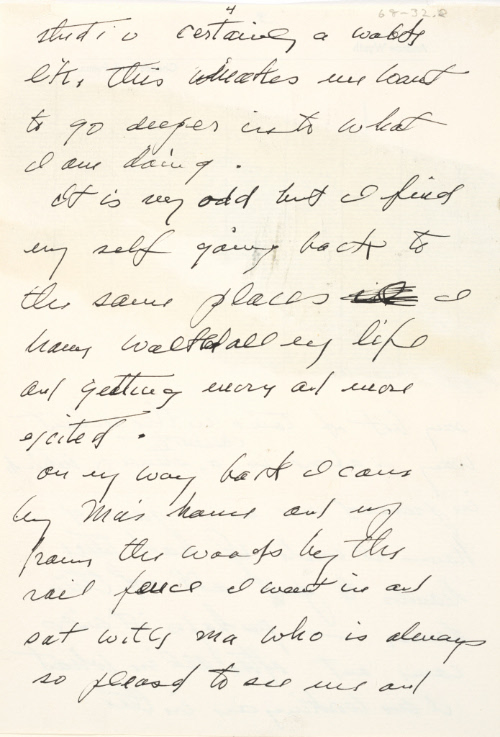 4
68-32.2
studio certainly a walk
like this makes me want
to go deeper into what
I am doing.
It is very odd but I find
my self going back to
the same places I
have walked all my life
and getting more and more
excited.
on my way back I came
by Ma's house and up
from the woods by the
rail fence I went in and
sat with ma who is always
so pleasd to see me and